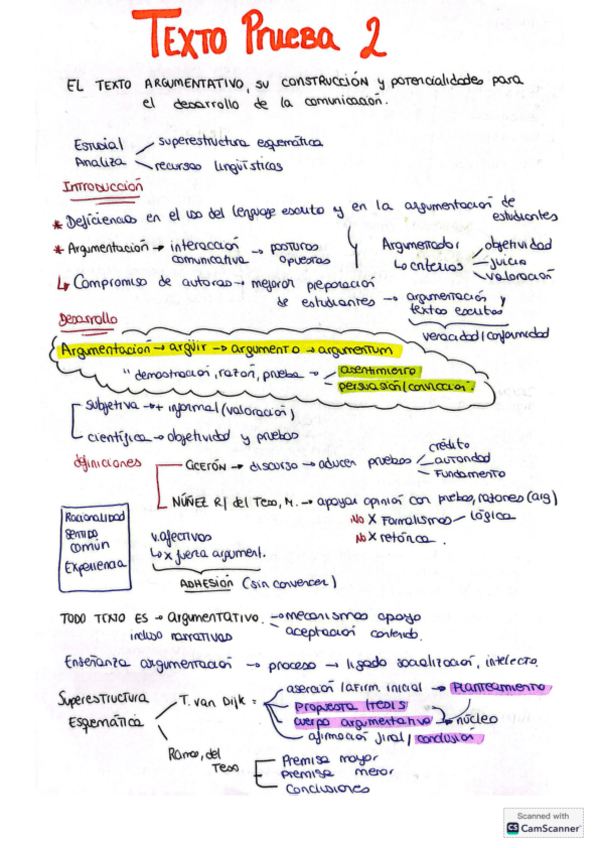 TEXTO PRUEBA 2
EL TEXTO ARGUMENTATIVO, su construcción y potencialidades para
el desarrollo de la comunicación.
Esencial
Analiza
superestructura esquemática
recursos lingüísticos
Introducción
* Deficiencias en el uso del lenguaje escrito y en la argumentación de
estudiantes
* Argumentación → interacción → posturas
comunicativa opuestas
Argumentador
↳ criterios
objetividad
juicio
valoración
↳ Compromiso de autoras → mejorar preparación
de estudiantes → argumentación y
textos escritos
veracidad / conformidad
Desarrollo
Argumentación → argüir → argumento → argumentum
"demostración, razón, prueba → asentimiento
persuasión / convicción.
subjetiva → + informal (valoración)
científica → objetividad y pruebas
definiciones
CICERÓN → discurso → aducir pruebas
crédito
autoridad
Fundamento
NÚÑEZ R / del Teso, M. → apoyar opinión con pruebas, razones (arg)
No X Formalismos - lógica
No X retórica.
Racionalidad
sentido
común
Experiencia
v. afectivos
↳ x fuerza argument.
ADHESIÓN (sin convencer)
TODO TEXTO ES → ARGUMENTATIVO. → mecanismos apoyo
incluso narrativas aceptación contenido.
Enseñanza argumentación → proceso → ligado socialización, intelecto.
Superestructura
Esquemática
T. van Dijk =
aserción / afirm. inicial → Planteamiento
Propuesta / tesis
cuerpo argumentativo → núcleo
afirmación final / conclusión
Ramos, del
Teso
Premisa mayor
Premisa menor
Conclusiones
Scanned with
CS CamScanner